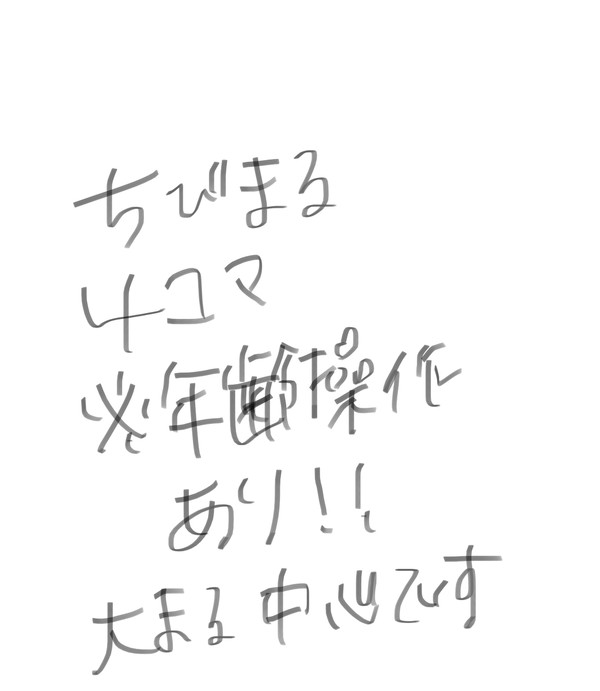 ちびまる
4コマ
※年齢操作
あり!!
大まる中心です